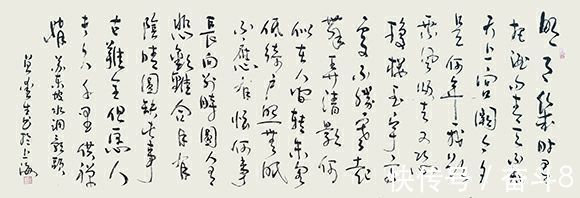 明月幾時有
把酒問青天不知
天上宮闕今夕
是何年我欲
乘風歸去又恐
瓊樓玉宇高
處不勝寒起
舞弄清影何
似在人間轉朱閣
低綺户照無眠
不應有恨何事
長向别時圓人有
悲歡離合月有
陰晴圓缺此事
古難全但願人
長久千里共嬋
娟 蘇東坡水調歌頭
書於上海
快传号 / 奋斗8